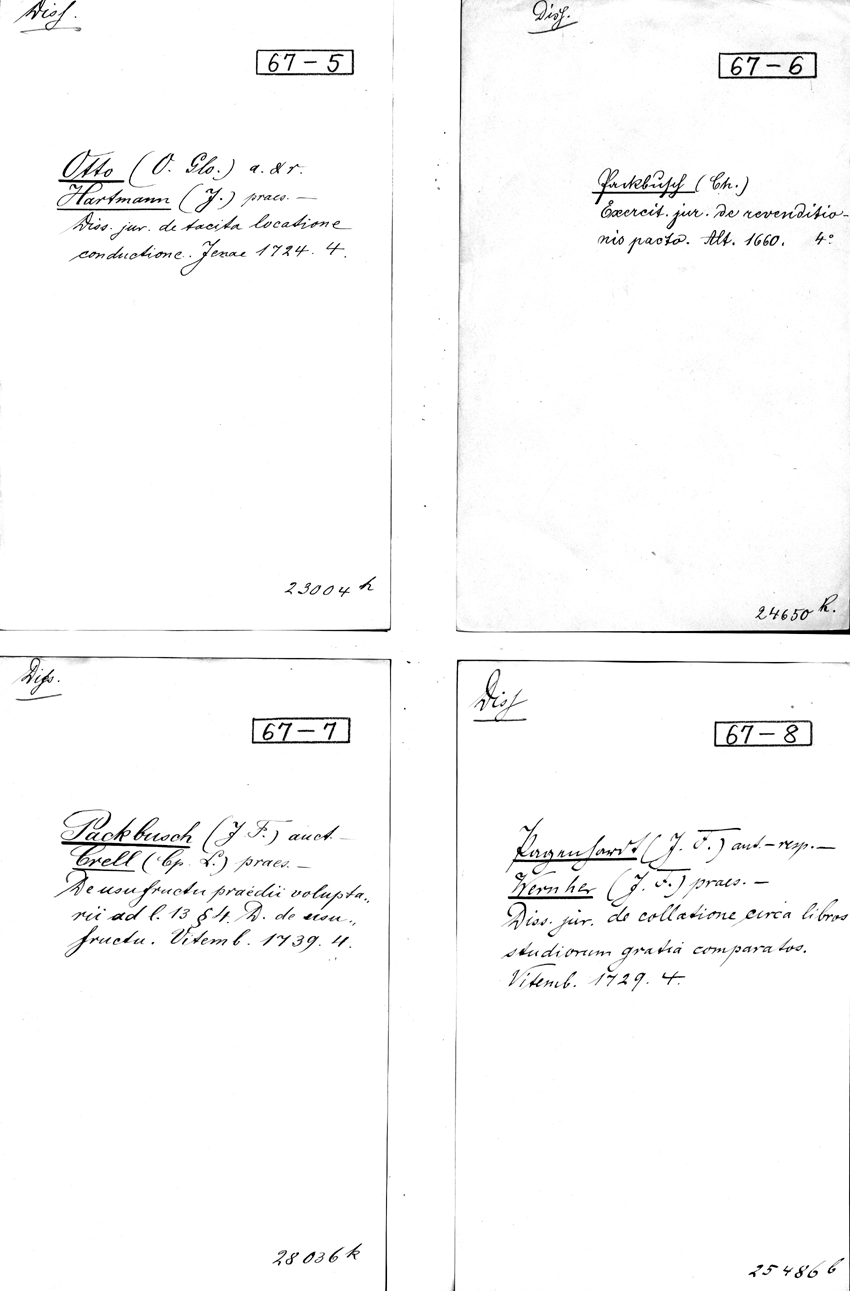 Diss.
67-5
Otto (O. Glo.) a. & r.
Hartmann (J.) praes. —
Diss. jur. de tacita locatione
conductione. Jenae 1724. 4.
23004 h
Diss.
67-6
Packbusch (Ch.)
Exercit. jur. de revenditio-
nis pacto. Alt. 1660. 4°
24650 h.
Diss.
67-7
Packbusch (J F.) auct. —
Crell (Cp. L.) praes. —
De usufructu praedii volupta„
rii ad l. 13 § 4. D. de usu„
fructu. Vitemb. 1739. 4.
28036 k
Diss
67-8
Pagenhardt (J. F.) aut.-resp. —
Wernher (J. F.) praes. —
Diss. jur. de collatione circa libros
studiorum gratia comparatos.
Vitemb. 1729. 4.
25486 b